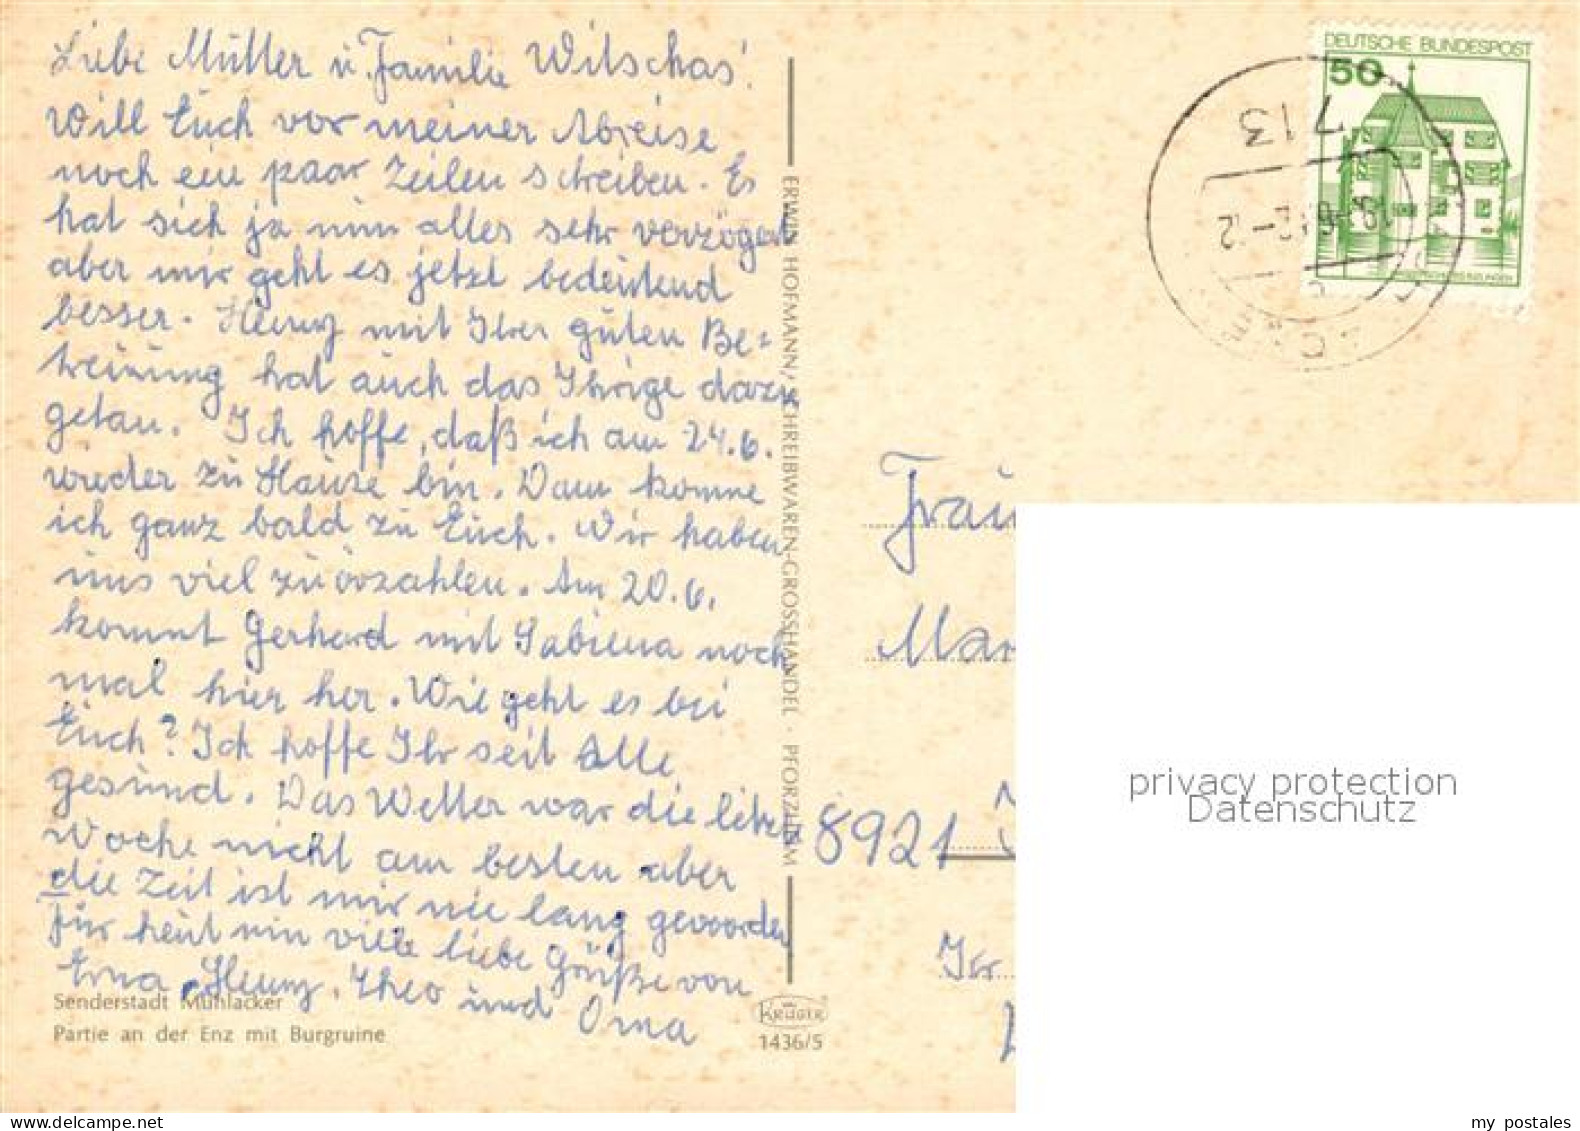 Liebe Mutter u. Familie Witschas!
Will Euch vor meiner Abreise
noch ein paar Zeilen schreiben. Es
hat sich ja nun alles sehr verzögert
aber mir geht es jetzt bedeutend
besser. mit Ihrer guten Be-
treuung hat auch das Ihrige dazu
getan. Ich hoffe, daß ich am 24.6.
wieder zu Hause bin. Dann komme
ich ganz bald zu Euch. Wir haben
uns viel zu erzahlen. Am 20.6.
kommt Gerhard mit Sabiena noch
mal hier her. Wie geht es bei
Euch? Ich hoffe Ihr seit Alle
gesund. Das Wetter war die letzte
Woche nicht am besten aber
die Zeit ist mir nie lang geworden
für heut nun viele liebe Grüße von
Erna, Theo und Oma
Senderstadt Mühlacker
Partie an der Enz mit Burgruine
ERWIN HOFMANN, SCHREIBWAREN-GROSSHANDEL · PFORZHEIM
KRÜGER
1436/5
DEUTSCHE BUNDESPOST
50
713
Frau
Mar
8921
privacy protection
Datenschutz
my postales